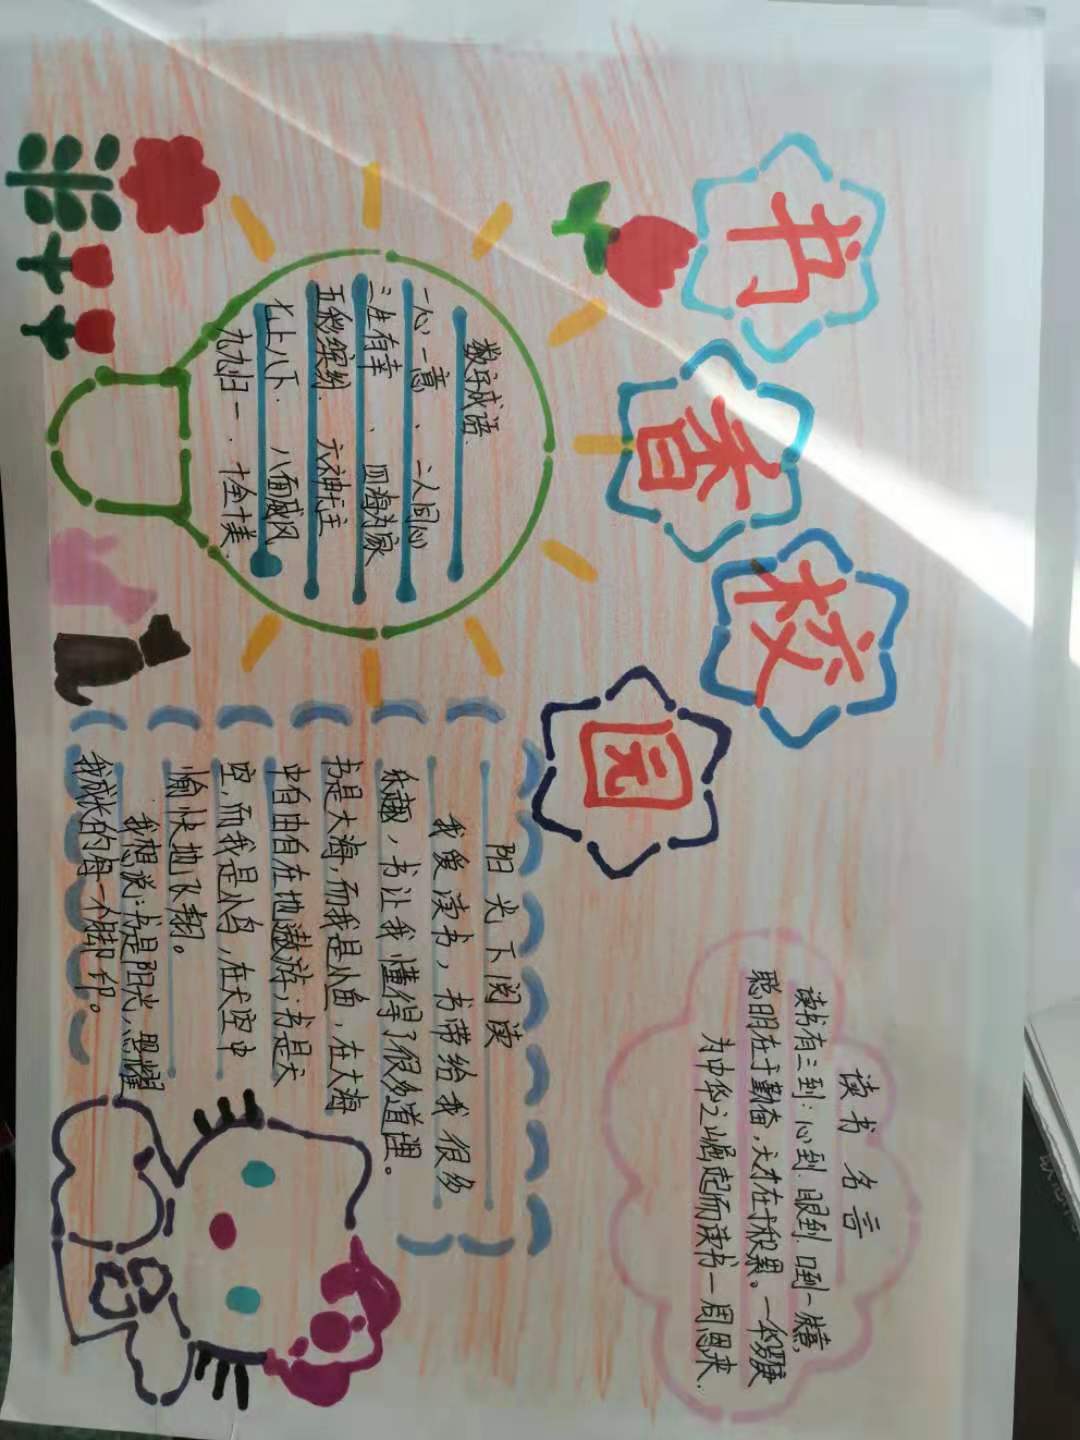 书香校园
读书名言
读书有三到:心到.眼到.口到—朱熹,
聪明在于勤奋,天才在于积累。—华罗庚
为中华之崛起而读书—周恩来.
数字成语.
一心一意、二人同心
三生有幸、四海为家
五彩缤纷.六神无主
七上八下.八面威风
九九归一.十全十美.
阳光下阅读
我爱读书,书带给我很多
乐趣,书让我懂得了很多道理。
书是大海,而我是小鱼,在大海
中自由自在地遨游;书是天
空,而我是小鸟,在天空中
愉快地飞翔。
我想说:书是阳光,照耀
我成长的每一个脚印。